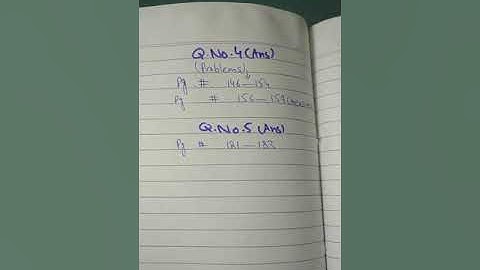 Q.No.4 (Ans)
(Problems)
Pg # 146—154
Pg # 156—159
Q.No.5 (Ans)
Pg # 181—183